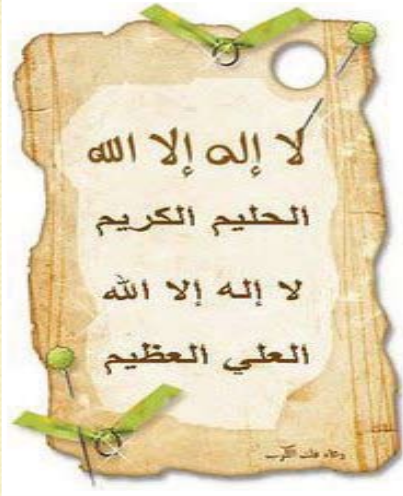 لا إله إلا الله
الحليم الكريم
لا إله إلا الله
العلي العظيم
دعاء فك الكرب